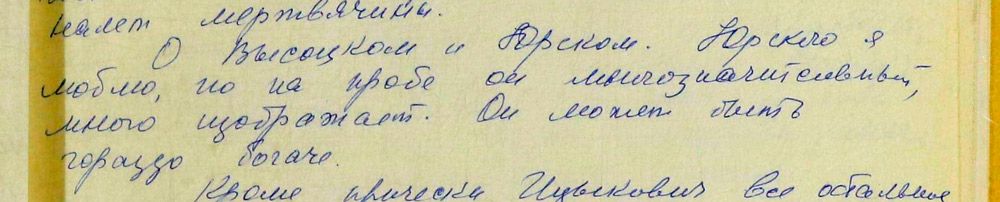 налет мертвячины.
О Высоцком и Юрском. Юрского я
люблю, но на пробе он многозначительный,
много изображает. Он может быть
гораздо богаче.
Кроме прически Ицыкович все остальное